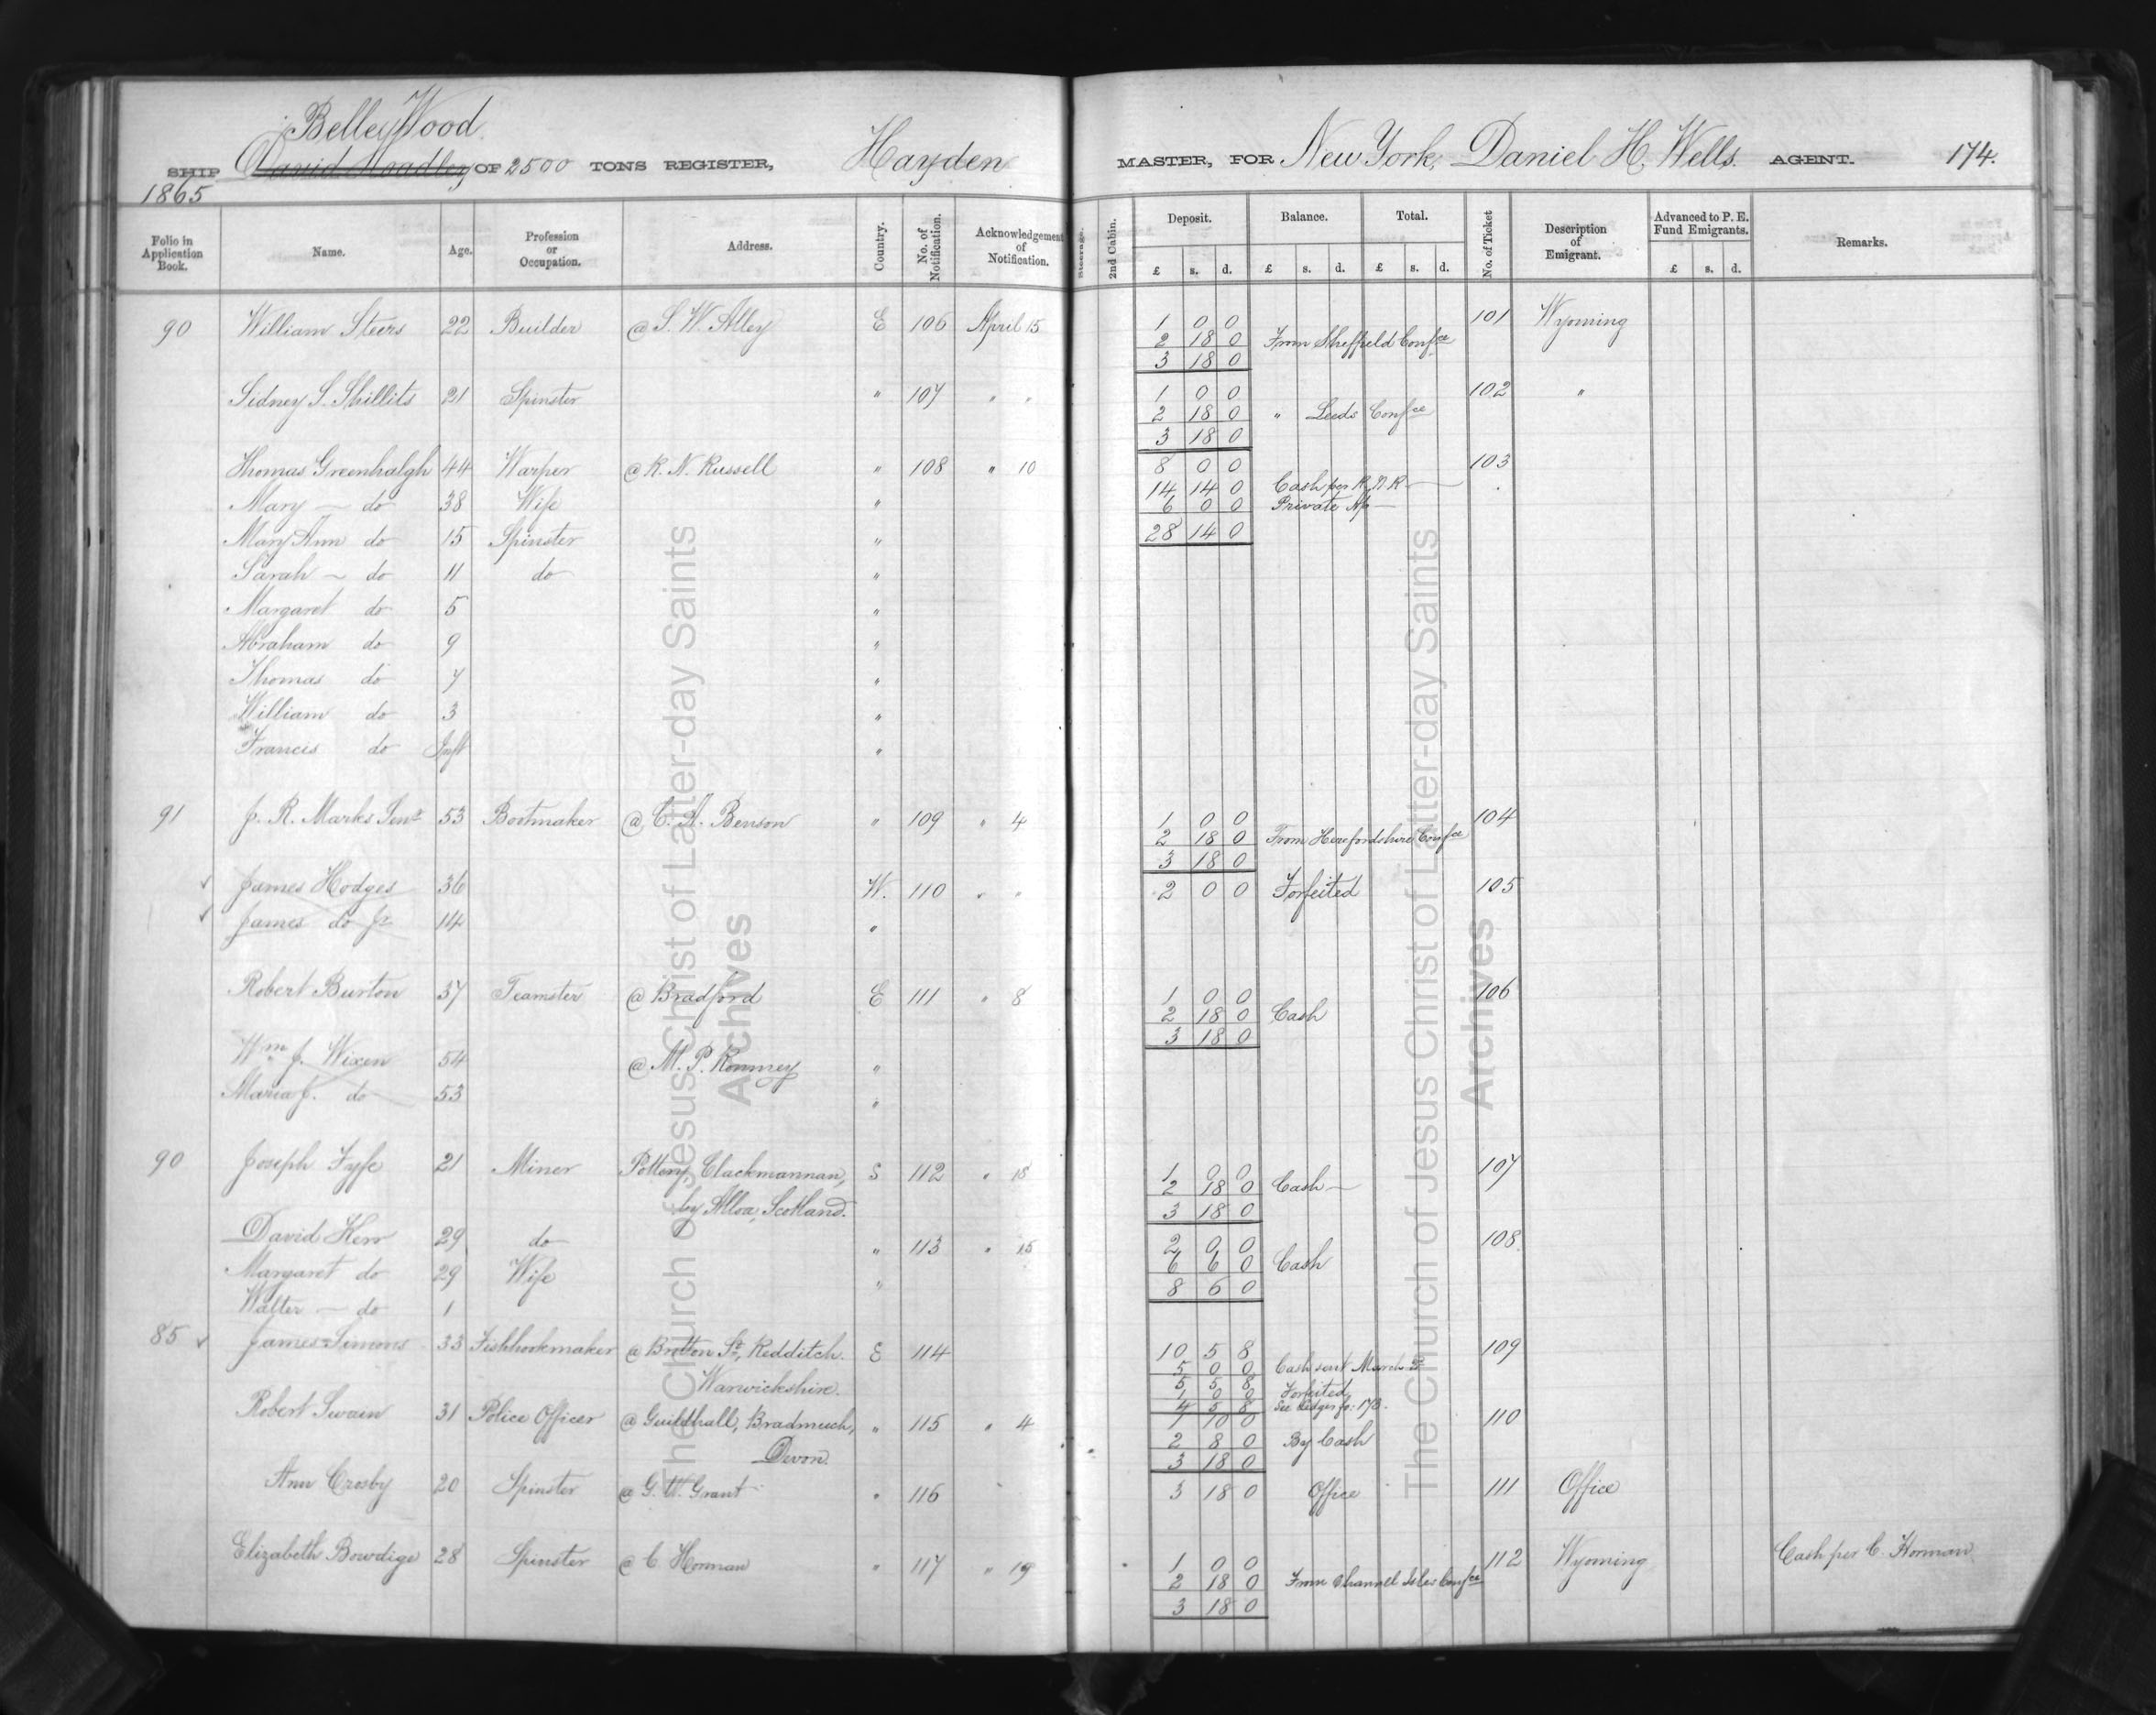 Belle Wood
SHIP David Hoadley OF 2500 TONS REGISTER, Hayden MASTER, FOR New York, Daniel H. Wells. AGENT. 174.
1865
Folio in Application Book. Name. Age. Profession or Occupation. Address. Country. No. of Notification. Acknowledgement of Notification. Steerage. 2nd Cabin. Deposit. £ s. d. Balance. £ s. d. Total. £ s. d. No. of Ticket Description of Emigrant. Advanced to P. E. Fund Emigrants. £ s. d. Remarks.
90 William Steers 22 Builder @ S. W. Alley E 106 April 15 1 0 0 101 Wyoming
2 18 0 From Sheffield Confce
3 18 0
Sidney S. Shillits 21 Spinster " 107 " " 1 0 0 102 "
2 18 0 " Leeds Confce
3 18 0
Thomas Greenhalgh 44 Warper @ R. N. Russell " 108 " 10 8 0 0 103
14 14 0 Cash per R N R
Mary — do 38 Wife " 6 0 0 Private
Mary Ann do 15 Spinster " 28 14 0
Sarah — do 11 do "
Margaret do 5 "
Abraham do 9 "
Thomas do 7 "
William do 3 "
Francis do Inft "
91 J. R. Marks Senr 53 Bootmaker @ C. A. Benson " 109 " 4 1 0 0 104
2 18 0 From Herefordshire Confce
3 18 0
James Hodges 36 W. 110 " " 2 0 0 Forfeited 105
James do Jr 14 "
Robert Burton 37 Teamster @ Bradford E 111 " 8 1 0 0 106
2 18 0 Cash
3 18 0
Wm J. Wixen 54 @ M. P. Romney "
Maria J. do 53 "
90 Joseph Fyfe 21 Miner Pottery, Clackmannan, S 112 " 18 1 0 0 107
2 18 0 Cash —
by Alloa, Scotland. 3 18 0
David Kerr 29 do " 113 " 15 2 0 0 108
Margaret do 29 Wife " 6 6 0 Cash
8 6 0
Walter — do 1
85 James Timms 33 Fishhookmaker @ Britton St, Redditch. E 114 10 5 8 109
5 0 0 Cash sent March
Warwickshire. 5 5 8 Forfeited
1 0 0 See Ledger fo: 178.
4 5 8
Robert Swain 31 Police Officer @ Guildhall, Bradninch, " 115 " 4 1 10 0 110
2 8 0 By Cash
Devon. 3 18 0
Ann Crosby 20 Spinster @ G. W. Grant " 116 3 18 0 Office 111 Office
Elizabeth Bowdige 28 Spinster @ C. Horman " 117 " 19 1 0 0 112 Wyoming Cash per C. Horman
2 18 0 From Channel Isles Confce
3 18 0
The Church of Jesus Christ of Latter-day Saints
Archives
The Church of Jesus Christ of Latter-day Saints
Archives